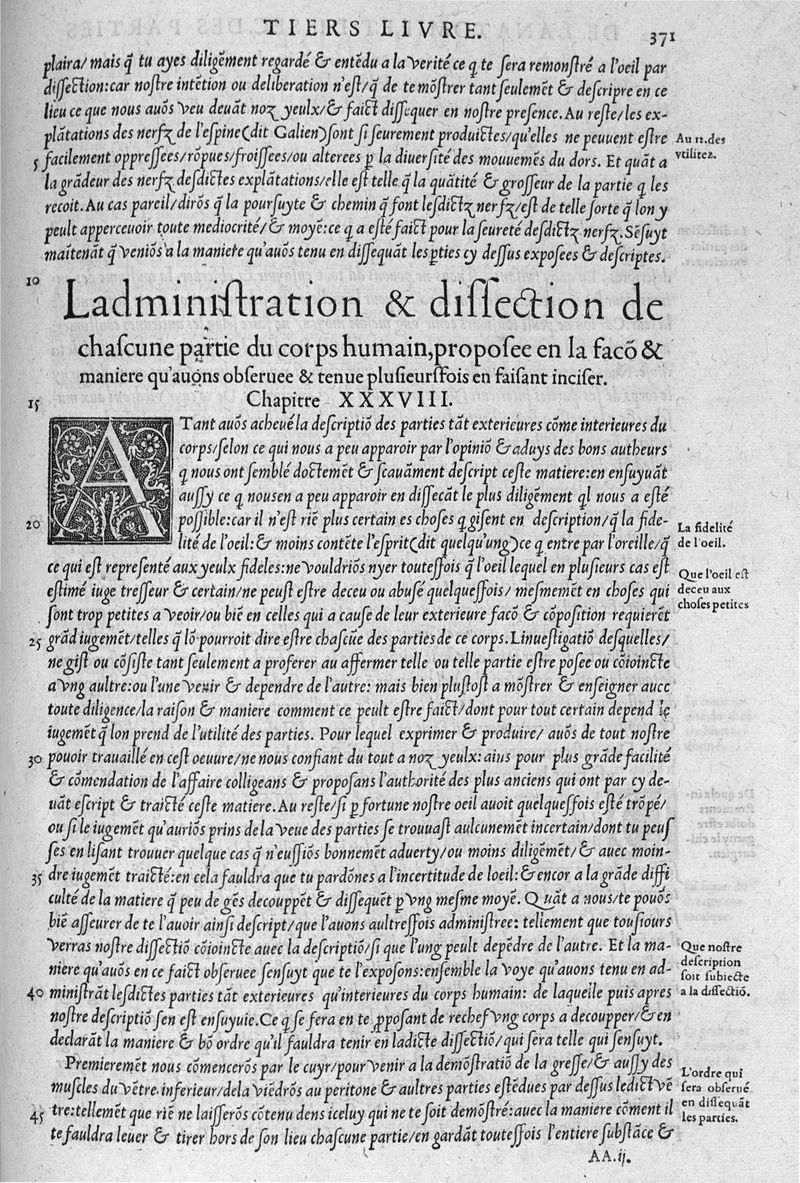 TIERS LIVRE. 371
plaira/ mais q̃ tu ayes diligẽment regardé & entẽdu a la verité ce q te sera remonstré a l'oeil par
dissection:car nostre intẽtion ou deliberation n'est/q̃ de te mõstrer tant seulemẽt & descripre en ce
lieu ce que nous auõs veu deuãt noz yeulx/& faict dissequer en nostre presence. Au reste/les ex-
plãtations des nerfz de l'espine(dit Galien)sont si seurement produictes/qu'elles ne peuuent estre
Au 11.des
vtilitez.
5 facilement oppressees/rõpues/froissees/ou alterees p la diuersité des mouuemẽs du dors. Et quãt a
la grãdeur des nerfz desdictes explãtations/elle est telle q̃ la quãtité & grosseur de la partie q les
recoit. Au cas pareil/dirõs q̃ la poursuyte & chemin q̃ font lesdictz nerfz/est de telle sorte q̃ lon y
peult apperceuoir toute mediocrité/& moyẽ:ce q a esté faict pour la seureté desdictz nerfz. Sẽsuyt
maĩtenãt q̃ veniõs a la maniere qu'auõs tenu en dissequãt les pties cy dessus exposees & descriptes.
10 Ladministration & dissection de
chascune partie du corps humain,proposee en la facõ &
maniere qu'auons obseruee & tenue plusieurssois en faisant inciser.
15 Chapitre XXXVIII.
ATant auõs acheué la descriptiõ des parties tãt exterieures cõme interieures du
corps/selon ce qui nous a peu apparoir par l'opiniõ & aduys des bons autheurs
q nous ont semblé doctemẽt & scauãment descript ceste matiere:en ensuyuãt
aussy ce q nousen a peu apparoir en dissecãt le plus diligẽment ql nous a esté
20 possible:car il n'est riẽ plus certain es choses q gisent en description/q̃ la fide-
La fidelité
de l'oeil.
lité de l'oeil:& moins contẽte l'esprit(dit quelqu'ung)ce q entre par l'oreille/q̃
ce qui est representé aux yeulx fideles:ne vouldriõs nyer toutesfois q̃ l'oeil lequel en plusieurs cas est
Que l'oeil est
deceu aux
choses petites
estimé iuge tresseur & certain/ne peust estre deceu ou abusé quelquesfois/ mesmemẽt en choses qui
sont trop petites a veoir/ou biẽ en celles qui a cause de leur exterieure facõ & cõposition requierẽt
25 grãd iugemẽt/telles q̃ lõ pourroit dire estre chascũe des parties de ce corps. Linuestigatiõ desquelles/
ne gist ou cõsiste tant seulement a proferer au affermer telle ou telle partie estre posee ou cõioincte
a vng aultre:ou l'une venir & dependre de l'autre: mais bien plustost a mõstrer & enseigner auec
toute diligence/la raison & maniere comment ce peult estre faict/dont pour tout certain depend le
iugemẽt q̃ lon prend de l'utilité des parties. Pour lequel exprimer & produire/ auõs de tout nostre
30 pouoir trauaillé en cest oeuure/ne nous confiant du tout a noz yeulx: ains pour plus grãde facilité
& cõmendation de l'affaire colligeans & proposans l'authorité des plus anciens qui ont par cy de-
uãt escript & traicté ceste matiere. Au reste/si p fortune nostre oeil auoit quelquesfois esté trõpé/
ou si le iugemẽt qu'auriõs prins de la veue des parties se trouuast aulcunemẽt incertain/dont tu peus
ses en lisant trouuer quelque cas q̃ n'eussiõs bonnemẽt aduerty/ou moins diligẽmẽt/& auec moin-
35 dre iugemẽt traicté:en cela fauldra que tu pardõnes a l'incertitude de loeil:& encor a la grãde diffi
culté de la matiere q̃ peu de gẽs decouppẽt & dissequẽt p vng mesme moyẽ. Quãt a nous/te pouõs
biẽ asseurer de te l'auoir ainsi descript/que l'auons aultresfois administree: tellement que tousiours
verras nostre dissectiõ cõioincte auec la descriptiõ/si que l'ung peult depẽdre de l'autre. Et la ma-
Que nostre
description
soit subiecte
a la dissectiõ.
niere qu'auõs en ce faict obseruee sensuyt que te l'exposons:ensemble la voye qu'auons tenu en ad-
40 ministrãt lesdictes parties tãt exterieures qu'interieures du corps humain: de laquelle puis apres
nostre descriptiõ sen est ensuyuie. Ce q se fera en te pposant de rechef vng corps a decoupper/& en
declarãt la maniere & bõ ordre qu'il fauldra tenir en ladicte dissectiõ/qui sera telle qui sensuyt.
Premieremẽt nous cõmencerõs par le cuyr/pour venir a la demõstratiõ de la gresse/& aussy des
L'ordre qui
sera obserué
en dissequãt
les parties.
muscles du vẽtre inferieur/dela viẽdrõs au peritone & aultres parties estẽdues par dessus ledict vẽ
45 tre:tellemẽt que riẽ ne laisserõs cõtenu dens iceluy qui ne te soit demõstré:auec la maniere cõment il
te fauldra leuer & tirer hors de son lieu chascune partie/en gardãt toutesfois l'entiere substãce &
AA.ij.